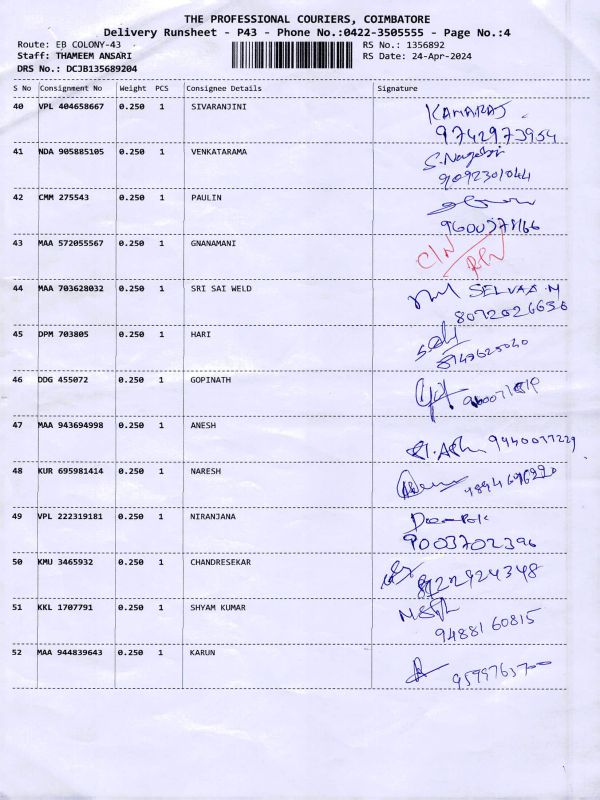 THE PROFESSIONAL COURIERS, COIMBATORE
Delivery Runsheet - P43 - Phone No.:0422-3505555 - Page No.:4
Route: EB COLONY-43 RS No.: 1356892
Staff: THAMEEM ANSARI RS Date: 24-Apr-2024
DRS No.: DCJB135689204
S No Consignment No Weight PCS Consignee Details Signature
40 VPL 404658667 0.250 1 SIVARANJINI KAMARAJ
9742973954
41 NDA 905885105 0.250 1 VENKATARAMA
9092301044
42 CMM 275543 0.250 1 PAULIN
9600578166
43 MAA 572055567 0.250 1 GNANAMANI C/N
44 MAA 703628032 0.250 1 SRI SAI WELD SELVAA M
8072026636
45 DPM 703805 0.250 1 HARI
8149625040
46 DDG 455072 0.250 1 GOPINATH
47 MAA 943694998 0.250 1 ANESH 9940077229
48 KUR 695981414 0.250 1 NARESH
49 VPL 222319181 0.250 1 NIRANJANA
9003702396
50 KMU 3465932 0.250 1 CHANDRESEKAR
51 KKL 1707791 0.250 1 SHYAM KUMAR
9488160815
52 MAA 944839643 0.250 1 KARUN